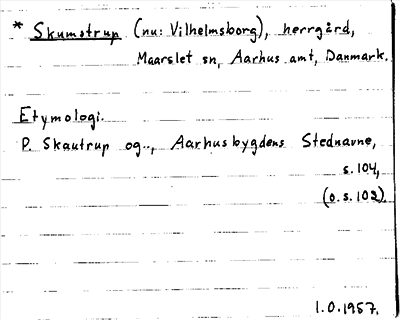 * Skumstrup (nu: Vilhelmsborg), herrgård,
Maarslet sn, Aarhus amt, Danmark.
Etymologi.
P. Skautrup og.., Aarhusbygdens Stednavne,
s.104,
(o.s.103).
I.O.1957.